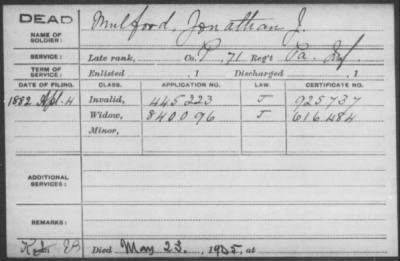 DEAD
NAME OF SOLDIER: Mulford, Jonathan J.
SERVICE: Late rank, Co. P, 71 Reg't Pa. Inf.
TERM OF SERVICE: Enlisted , 1 Discharged , 1
DATE OF FILING. CLASS. APPLICATION NO. LAW. CERTIFICATE NO.
1882 Apl. 4 Invalid, 445223 J 925737
Widow, 840096 J 616484
Minor,
ADDITIONAL SERVICES:
REMARKS:
Died May 23, 1905, at